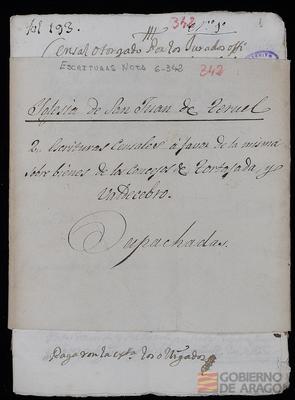 fol 193.
342
Censal otorgado por los Jurados offi
ESCRITURAS NOTA 6-342
342
Iglesia de San Juan de Teruel
2. Escrituras Censales á favor de la misma
sobre bienes de los Concejos de Tortajada, y
Valdecebro.
Dupachadas.
pagaron la los obligados
GOBIERNO
DE ARAGON